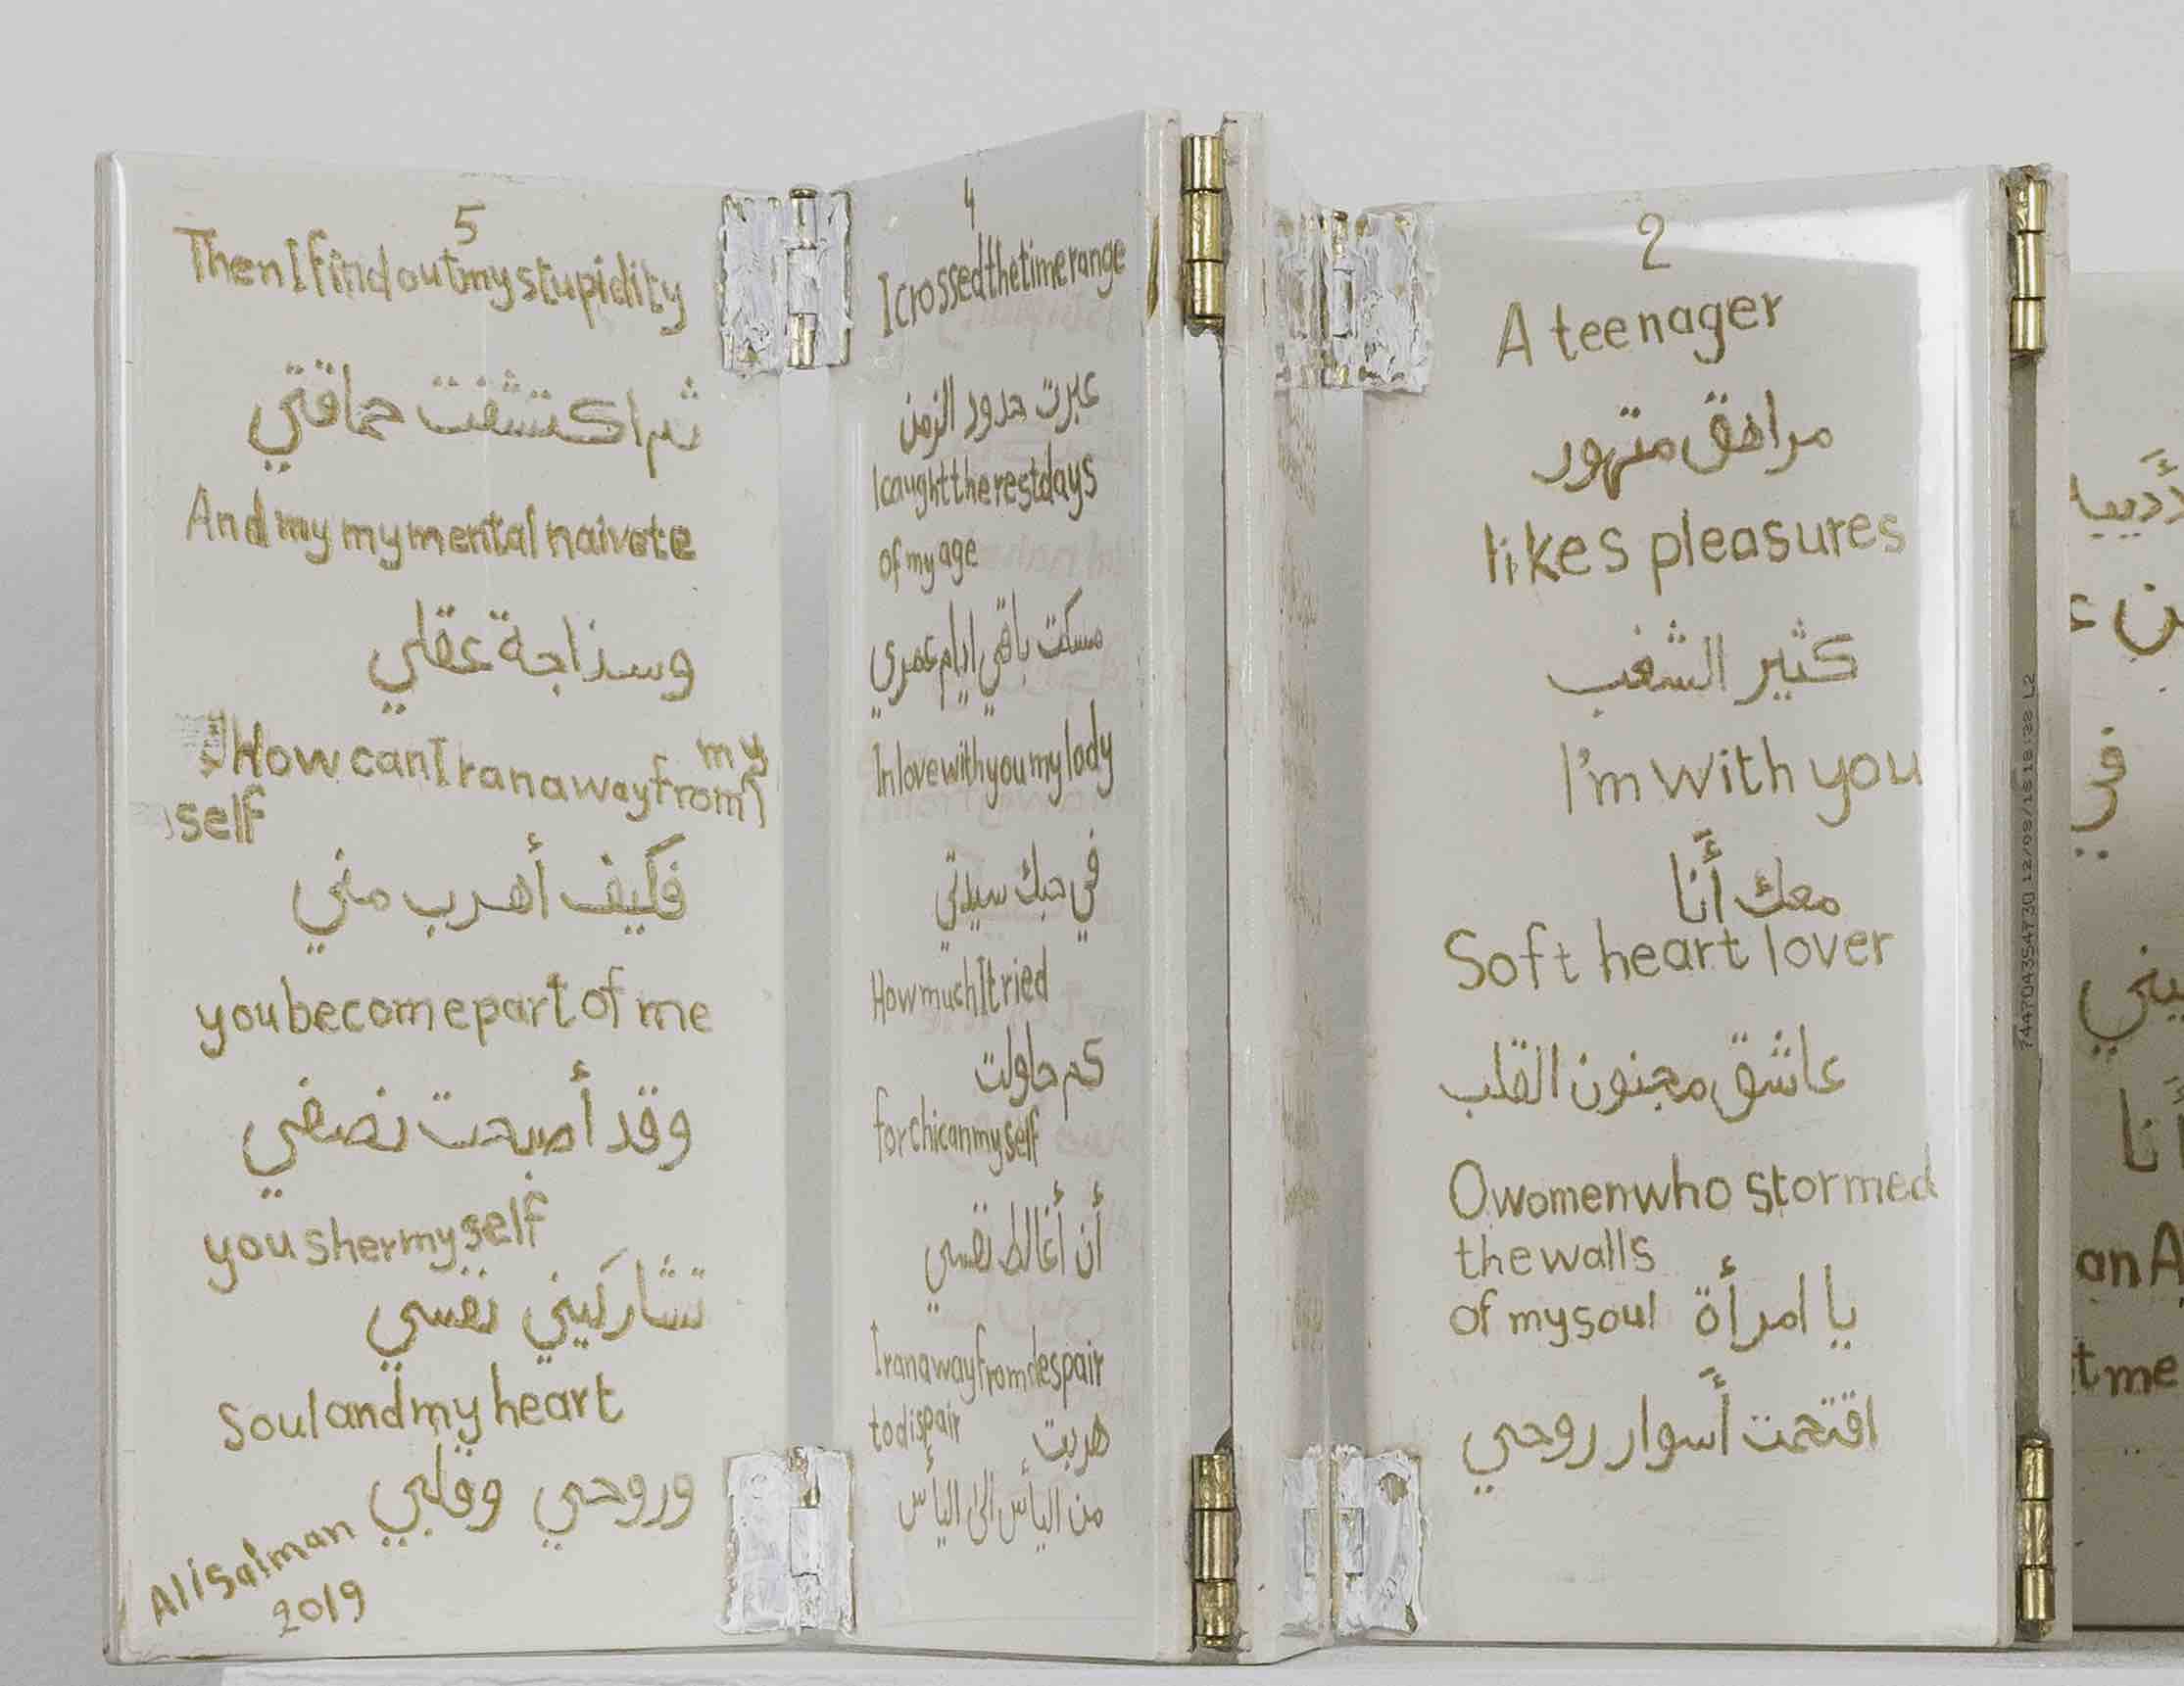 5
Then I find out my stupidity
ثم اكتشفت حماقتي
And my my mental naivete
وسذاجة عقلي
How can I ran away from my
self
فكَيف أهرب مني
you become part of me
وقد أصبحت نصفي
you sher my self
تشاركَيني نفسي
Soul and my heart
وروحي وقلبي
Ali Salman
2019
4
I crossed the time range
عبرت حدود الزمن
I caught the rest days
of my age
مسكت باقي ايام عمري
In love with you my lady
في حبك سيدتي
How much I tried
كم حاولت
for chican my self
أن أغالط نفسي
I ran away from despair
to dispair هربت
من اليأس الى اليأس
2
A teenager
مراهق متهور
likes pleasures
كثير الشغب
I'm with you
معك أَنا
Soft heart lover
عاشق مجنون القلب
O women who stormed
the walls
of my soul يا امرأة
اقتحمت أَسوار روحي
74470435473D 12/09/16 16:28 L2
في
أَنا
an A
t me